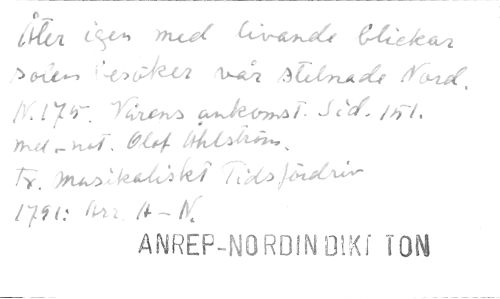 Åter igen med livande blickar
solen besöker vår stelnade Nord.
N. 175. Vårens ankomst. Sid. 151.
mel-not. Olof Åhlström.
Tr. Musikaliskt Tidsfördriv
1791: Arr. A-N.
ANREP-NORDIN DIKT TON